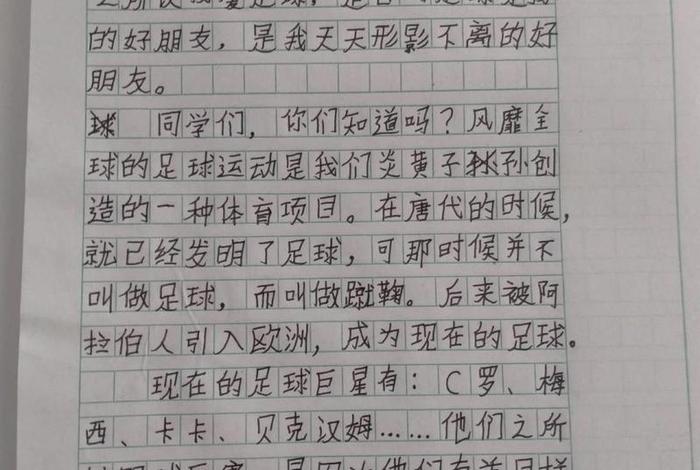 的好朋友，是我天天形影不离的好
朋友。
同学们，你们知道吗？风靡全
球的足球运动是我们炎黄子孙创
造的一种体育项目。在唐代的时候，
就已经发明了足球，可那时候并不
叫做足球，而叫做蹴鞠。后来被阿
拉伯人引入欧洲，成为现在的足球。
现在的足球巨星有：C罗、梅
西、卡卡、贝克汉姆……他们之所